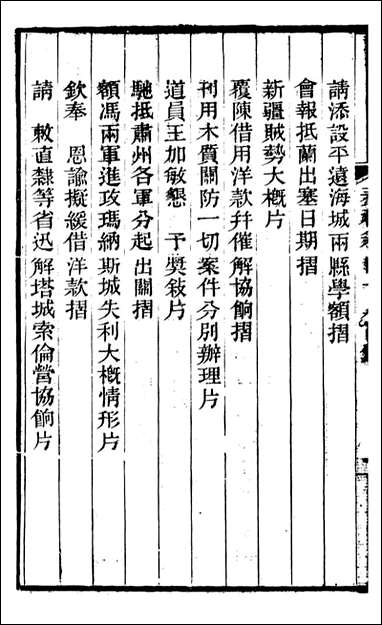 請添設平遠海城兩縣學額摺
會報抵蘭出塞日期摺
新疆賊勢大概片
覆陳借用洋款幷催解協餉摺
刊用木質關防一切案件分別辦理片
道員王加敏懇　予奬敍片
馳抵肅州各軍分起出關摺
額馮兩軍進攻瑪納斯城失利大概情形片
欽奉　恩諭擬緩借洋款摺
請　敕直隸等省迅解塔城索倫營協餉片